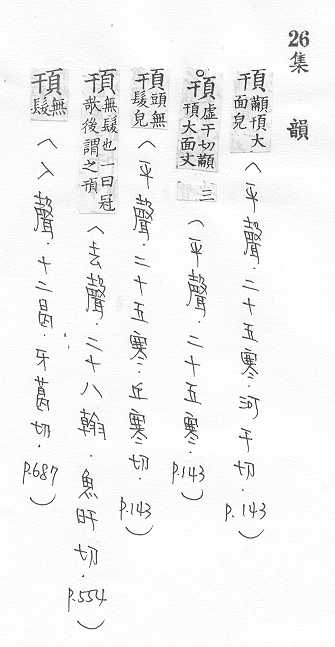 26
集韻
頇 顢頇大面皃 (平聲.二十五寒.河干切.p.143)
頇 虛干切顢頇大面文三 (平聲.二十五寒.p.143)
頇 頭無髮皃 (平聲.二十五寒.丘寒切.p.143)
頇 無髮也一曰冠欹後謂之頇 (去聲.二十八翰.魚旰切.p.554)
頇 無髮 (入聲.十二曷.牙葛切.p.687)